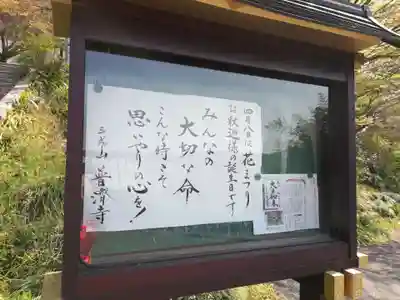 四月八日は花まつり
お釈迦様の誕生日です
みんなの
大切な命
こんな時こそ
思いやりの心を！
普濟寺